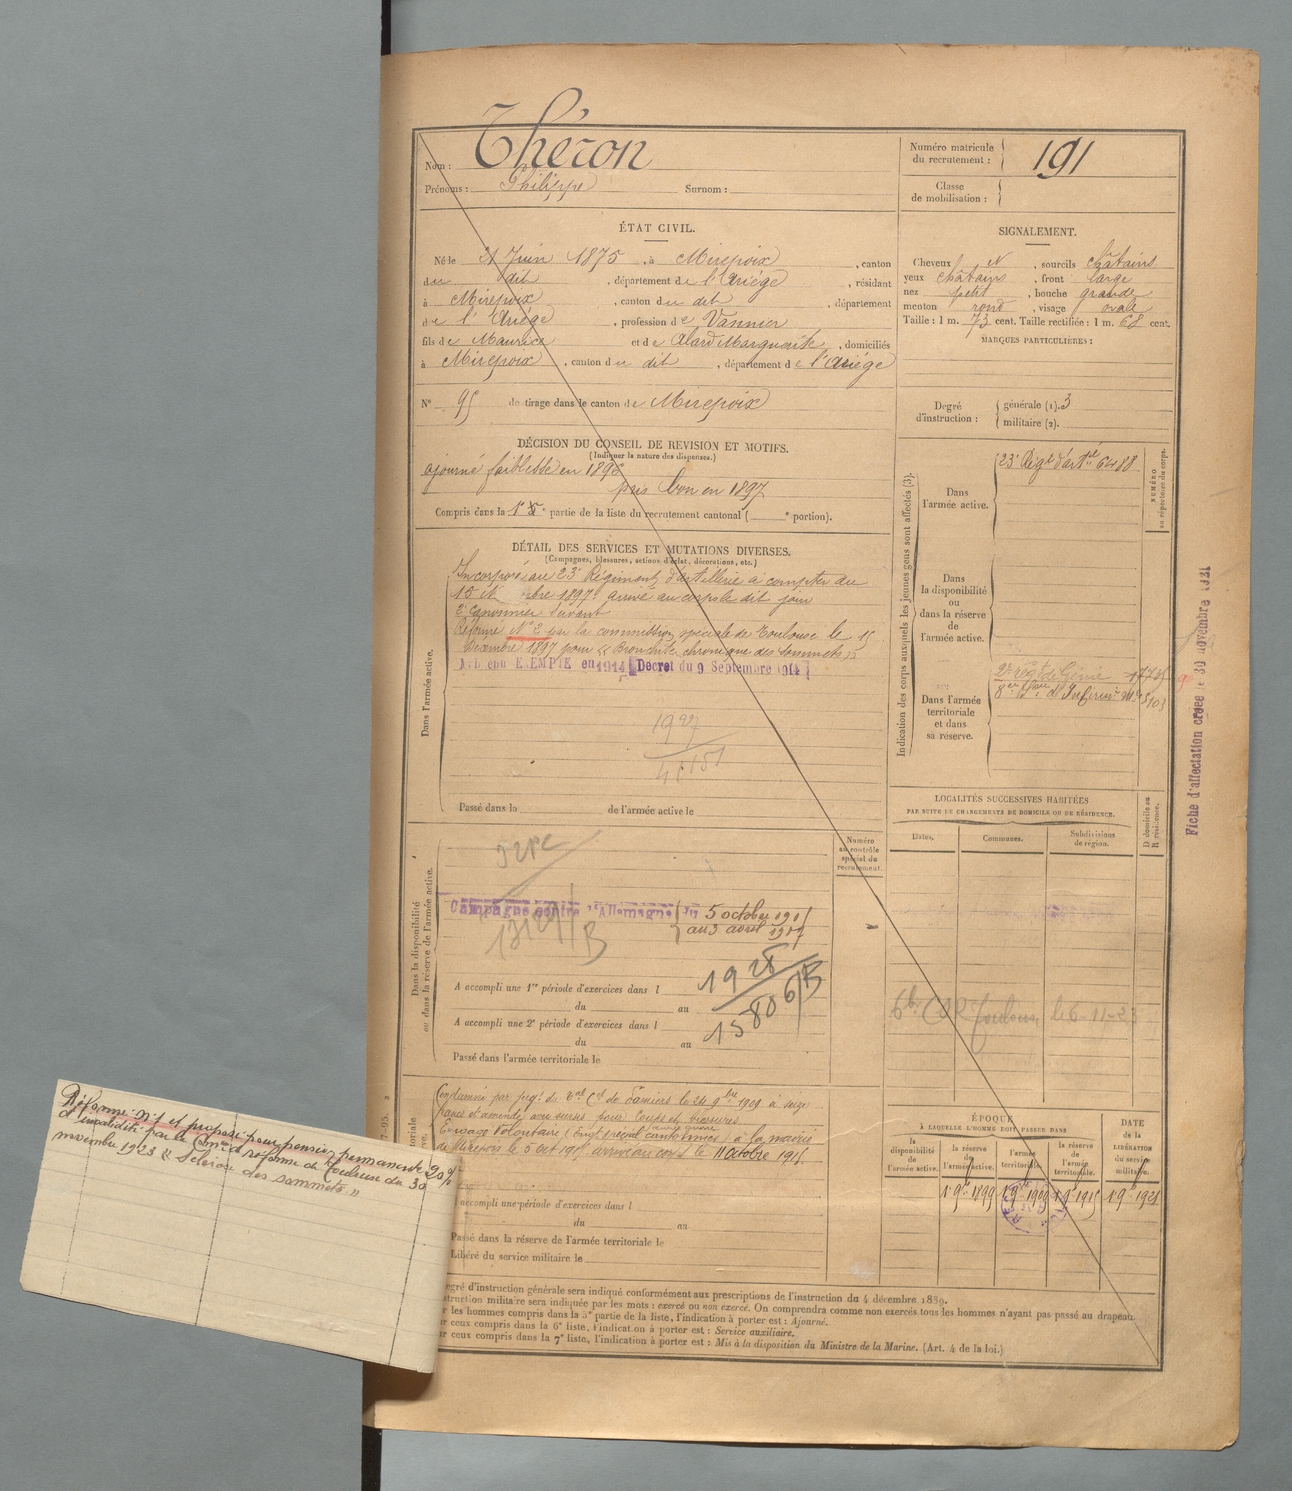 Nom : Théron
Prénoms : Philippe Surnom :
Numéro matricule
du recrutement : 191
Classe
de mobilisation :
ÉTAT CIVIL.
Né le 21 Juin 1875, à Mirepoix, canton
du dit, département de l'Ariége, résidant
à Mirepoix, canton du dit, département
de l'Ariége, profession de Vannier
fils de Maurice et de Alard Marguerite, domiciliés
à Mirepoix, canton du dit, département de l'Ariége
N° 95 de tirage dans le canton de Mirepoix
SIGNALEMENT.
Cheveux N, sourcils châtains
yeux châtains, front large
nez petit, bouche grande
menton rond, visage ovale
Taille : 1 m. 73 cent. Taille rectifiée : 1 m. 68 cent.
MARQUES PARTICULIÈRES :
Degré
d'instruction :
générale (1). 3
militaire (2).
DÉCISION DU CONSEIL DE REVISION ET MOTIFS.
(Indiquer la nature des dispenses.)
ajourné faiblesse en 1896
puis bon en 1897
Compris dans la 1e partie de la liste du recrutement cantonal ( e portion).
DÉTAIL DES SERVICES ET MUTATIONS DIVERSES.
(Campagnes, blessures, actions d'éclat, décorations, etc.)
Dans l'armée active.
Incorporé au 23e Régiment d'artillerie a compter du
15 bre 1897. arrivé au corps le dit jour
2e canonnier servant
Réformé N° 2 par la commission spéciale de Toulouse le 15
Décembre 1897 pour « Bronchite chronique des sommets »
EXEMPTÉ en 1914 Décret du 9 Septembre 1914
Passé dans la de l'armée active le
Indication des corps auxquels les jeunes gens sont affectés (3).
Dans
l'armée active.
23e Régt d'artie 6488
NUMÉRO
au répertoire du corps.
Dans
la disponibilité
ou
dans la réserve
de
l'armée active.
Dans l'armée
territoriale
et dans
sa réserve.
2e régt de Génie
Fiche d'affectation créée le 30 novembre 1921
LOCALITÉS SUCCESSIVES HABITÉES
PAR SUITE DE CHANGEMENTS DE DOMICILE OU DE RÉSIDENCE.
Dates.
Communes.
Subdivisions
de région.
D domicile ou
R résidence.
Toulouse le 6-11-23
Dans la disponibilité
ou dans la réserve de l'armée active.
Numéro
au contrôle
spécial du
recrutement.
Campagne contre l'Allemagne du 5 octobre 191
au 3 avril 191
1928
15806/B
A accompli une 1re période d'exercices dans l
du au
A accompli une 2e période d'exercices dans l
du au
Passé dans l'armée territoriale le
Condamné par jugt du Tal Cel de Pamiers le 24 9bre 1909 à seize
francs d'amende avec sursis pour Coups et blessures
Engagé Volontaire (Engt spécial) à la mairie
de Mirepoix le 5 oct 1915 arrivé au corps le 11 octobre 1915.
accompli une période d'exercices dans l
du au
Passé dans la réserve de l'armée territoriale le
Libéré du service militaire le
ÉPOQUE
À LAQUELLE L'HOMME DOIT PASSER DANS
la
disponibilité
de
l'armée active.
la réserve
de
l'armée active.
l'armée
territoriale.
la réserve
de
l'armée
territoriale.
DATE
de la
LIBÉRATION
du service
militaire.
1 9bre 1899
Réforme n° 1 et proposé pour pension permanente 20 %
d'invalidité par la Comon de réforme de Toulouse du 30
novembre 1923 « Sclérose des sommets »
egré d'instruction générale sera indiqué conformément aux prescriptions de l'instruction du 4 décembre 1889.
struction militaire sera indiquée par les mots : exercé ou non exercé. On comprendra comme non exercés tous les hommes n'ayant pas passé au drapeau.
r les hommes compris dans la 5e partie de la liste, l'indication à porter est : Ajourné.
ur ceux compris dans la 6e liste, l'indication à porter est : Service auxiliaire.
ur ceux compris dans la 7e liste, l'indication à porter est : Mis à la disposition du Ministre de la Marine. (Art. 4 de la loi.)